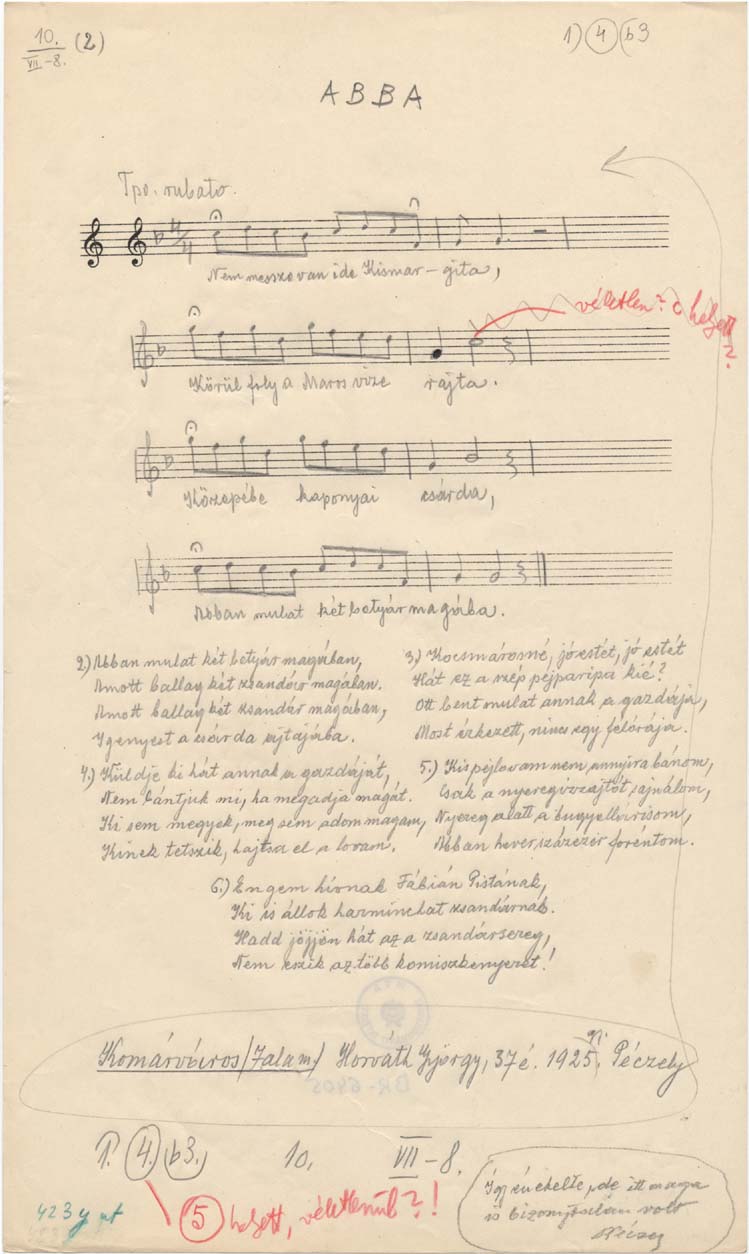 10. (2)
VII-8.
1) 4 b3
ABBA
Tpo. rubato.
4/4
Nem messze van ide Kismar-gita,
véletlen? c helyett?
Körül foly a Maros vize rajta.
Közepébe kaponyai csárda,
Abban mulat két betyár magába.
2) Abban mulat két betyár magában,
Amott ballag két zsandár magában.
Amott ballag két zsandár magában,
Igenyest a csárda ajtajába.
3.) Kocsmárosné, jó estét, jó estét
Hát ez a szép pejparipa kié?
Ott bent mulat annak a gazdája,
Most érkezett, nincs egy felórája.
4.) Küldje ki hát annak a gazdáját,
Nem bántjuk mi, ha megadja magát.
Ki sem megyek, meg sem adom magam,
Kinek tetszik, hajtsa el a lovam.
5.) Kispejlovam nem annyira bánom,
Csak a nyeregizzajtót sajnálom,
Nyereg alatt a bugyellárisom,
Abban hever százezer foréntom.
6.) Engem hívnak Fábián Pistának,
Ki is állok harminchat zsandárnak.
Hadd jöjjön hát az a zsandársereg,
Nem eszik az több komiszkenyeret!
Komárváros (Zalam) Horváth György, 37 é. 1925. Péczely
1. 4. b3. 10. VII-8.
5 helyett, véletlenül?!
Így énekelte, de itt maga
is bizonytalan volt
423